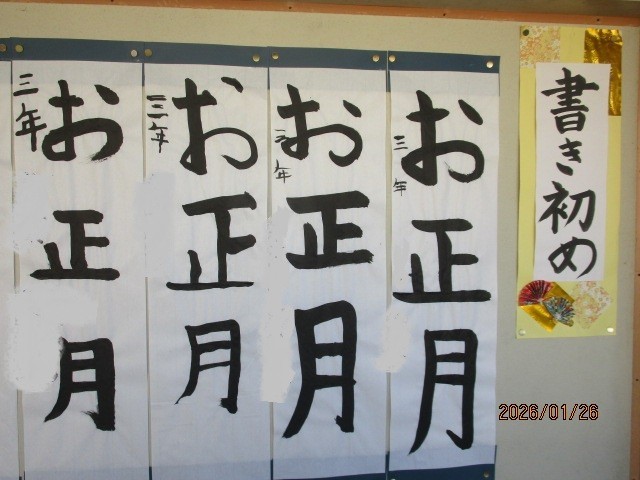 書き初め
お正月
三年
お正月
三年
お正月
三年
お正月
三年
2026/01/26